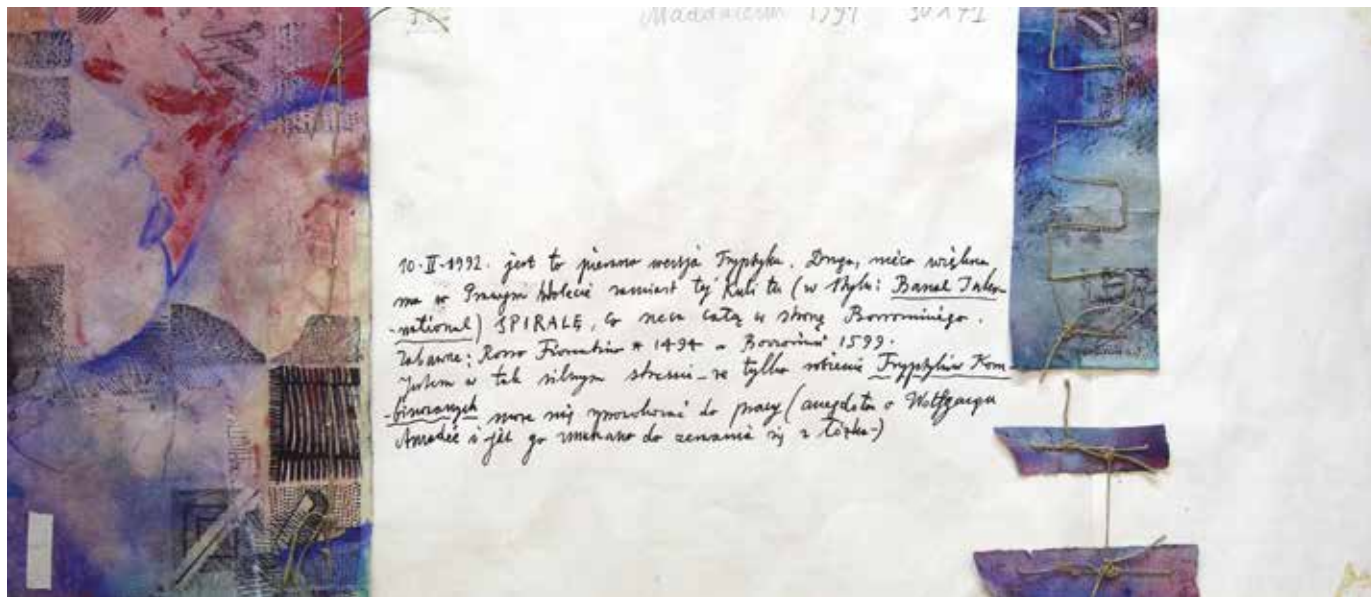 Maddalena 1991 30 x 41
10-II-1992. jest to pierwsza wersja Tryptyku. Druga, nieco większa
ma w Prawym Skrzydle zamiast tej Kuli tu (w stylu: Banal Inter-
-national) SPIRALĘ, co neca całą w stronę Borrominiego.
Zabawne: Rosso Fiorentino * 1494 a Borromini 1599.
Jestem w tak silnym stresie - że tylko robienie Tryptyków Kom-
-binowanych może mię sprowokować do pracy (anegdota o Wolfgangu
Amadeé i jak go zmuszano do zerwania się z łóżka-)